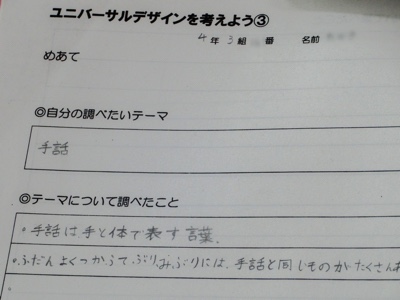 ユニバーサルデザインを考えよう③
4年3組 番 名前
めあて
◎自分の調べたいテーマ
手話
◎テーマについて調べたこと
・手話は手と体で表す言葉.
・ふだんよくつかうてぶりみぶりには、手話と同じものがたくさん